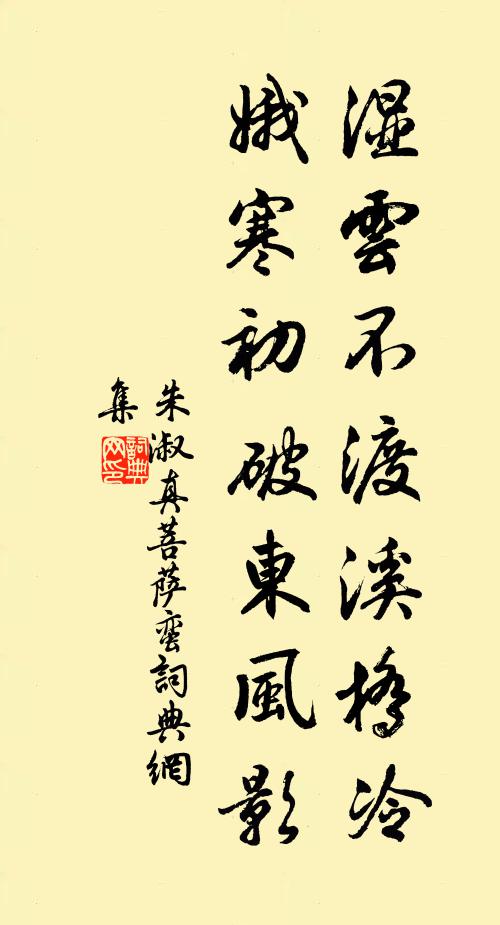 湿雲不渡溪橋冷
娥寒初破東風影
朱淑真菩薩蠻詞典網
集
詞典网印